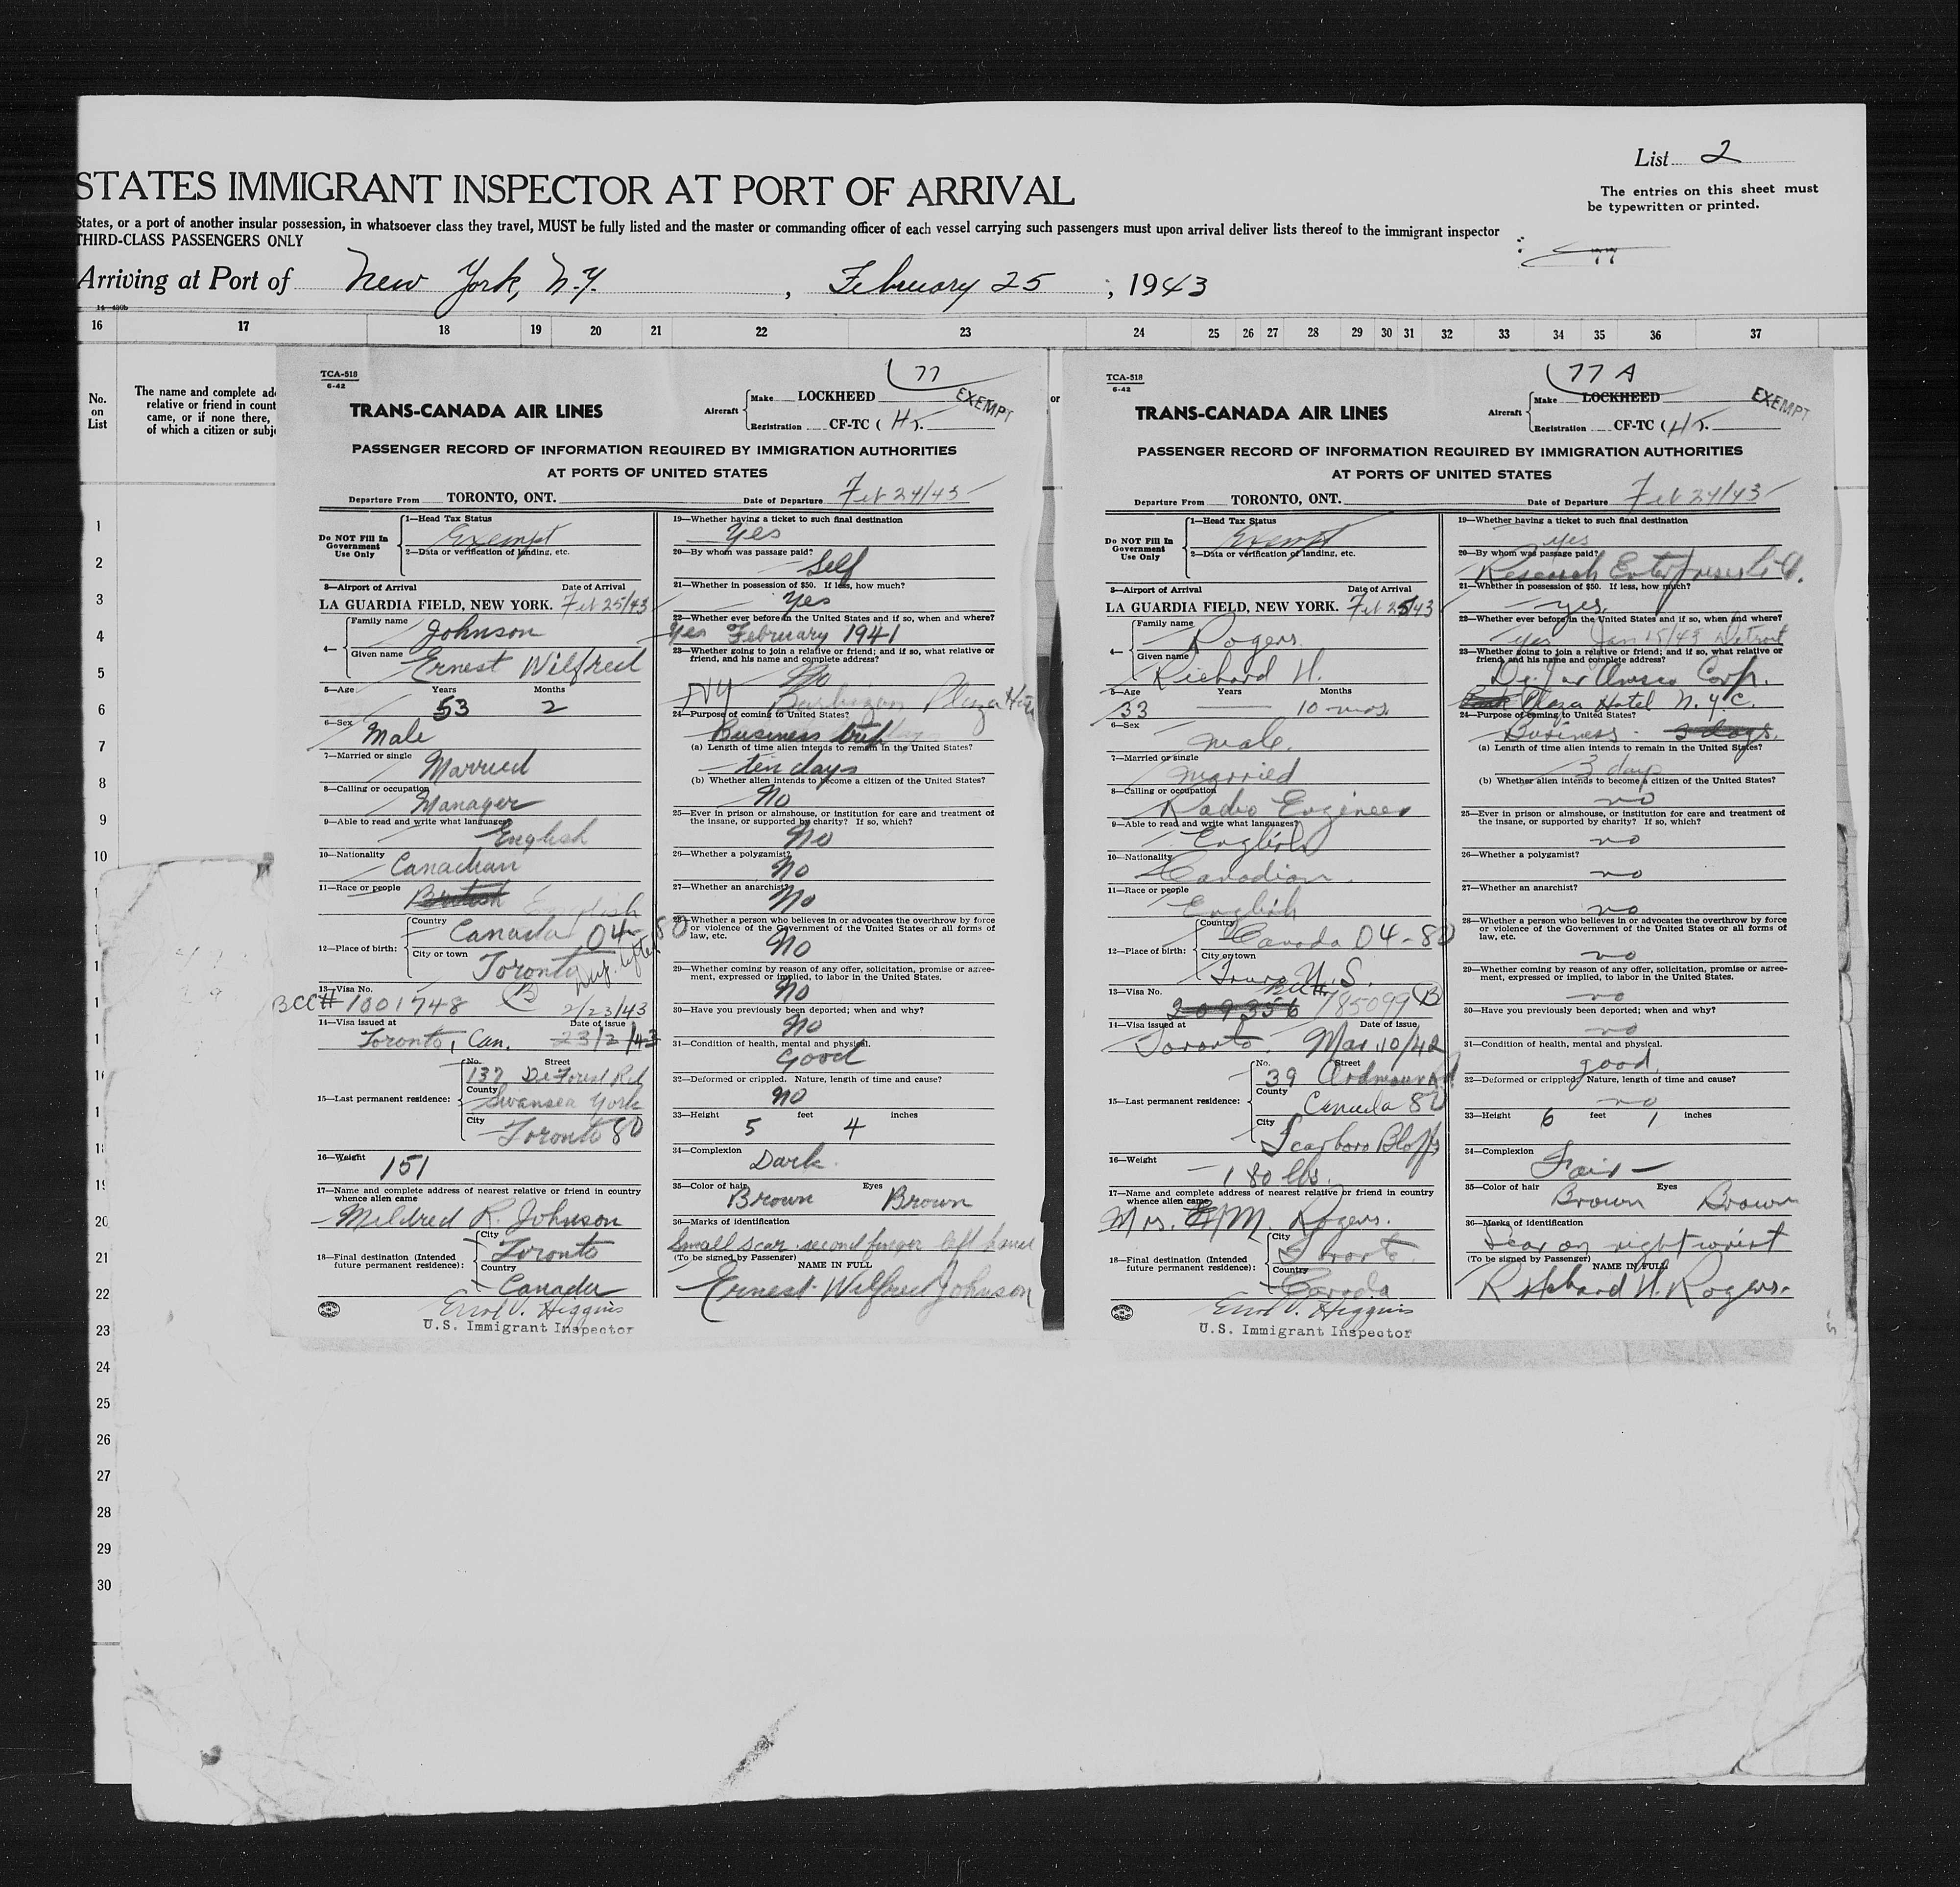 List 2
STATES IMMIGRANT INSPECTOR AT PORT OF ARRIVAL
The entries on this sheet must
be typewritten or printed.
States, or a port of another insular possession, in whatsoever class they travel, MUST be fully listed and the master or commanding officer of each vessel carrying such passengers must upon arrival deliver lists thereof to the immigrant inspector
THIRD-CLASS PASSENGERS ONLY
77
Arriving at Port of New York, N.Y. , February 25 , 1943
16 17 18 19 20 21 22 23 24 25 26 27 28 29 30 31 32 33 34 35 36 37
No.
on
List
The name and complete ad
relative or friend in count
came, or if none there,
of which a citizen or subj
or
1
2
3
4
5
6
7
8
9
10
18
19
20
21
22
23
24
25
26
27
28
29
30
TCA-518
6-42
77
TRANS-CANADA AIR LINES
Aircraft
Make LOCKHEED
Registration CF-TC (H).
EXEMPT
PASSENGER RECORD OF INFORMATION REQUIRED BY IMMIGRATION AUTHORITIES
AT PORTS OF UNITED STATES
Departure From TORONTO, ONT. Date of Departure Feb 24/43
Do NOT Fill In
Government
Use Only
1—Head Tax Status
Exempt
2—Data or verification of landing, etc.
3—Airport of Arrival Date of Arrival
LA GUARDIA FIELD, NEW YORK. Feb 25/43
4—
Family name Johnson
Given name Ernest Wilfred
5—Age Years Months
53 2
6—Sex
Male
7—Married or single
Married
8—Calling or occupation
Manager
9—Able to read and write what languages
English
10—Nationality
Canadian
11—Race or people
British English
12—Place of birth:
Country
Canada 04-80
City or town
Toronto
13—Visa No.
BCC# 1001748 B 2/23/43
14—Visa issued at Date of issue
Toronto, Can. 23/2/43
15—Last permanent residence:
No. Street
137 DeForest Rd
County
Swansea York
City
Toronto 80
16—Weight 151
17—Name and complete address of nearest relative or friend in country
whence alien came
Mildred R. Johnson
18—Final destination (Intended
future permanent residence):
City
Toronto
Country
Canada
Errol V. Higgins
U.S. Immigrant Inspector
19—Whether having a ticket to such final destination
Yes
20—By whom was passage paid?
Self
21—Whether in possession of $50. If less, how much?
Yes
22—Whether ever before in the United States and if so, when and where?
Yes February 1941
23—Whether going to join a relative or friend; and if so, what relative or
friend, and his name and complete address?
No
NY Barbizon Plaza Hotel
24—Purpose of coming to United States?
Business trip
(a) Length of time alien intends to remain in the United States?
ten days
(b) Whether alien intends to become a citizen of the United States?
No
25—Ever in prison or almshouse, or institution for care and treatment of
the insane, or supported by charity? If so, which?
No
26—Whether a polygamist?
No
27—Whether an anarchist?
No
28—Whether a person who believes in or advocates the overthrow by force
or violence of the Government of the United States or all forms of
law, etc.
No
29—Whether coming by reason of any offer, solicitation, promise or agree-
ment, expressed or implied, to labor in the United States.
No
30—Have you previously been deported; when and why?
No
31—Condition of health, mental and physical.
Good
32—Deformed or crippled. Nature, length of time and cause?
No
33—Height feet inches
5 4
34—Complexion
Dark
35—Color of hair Eyes
Brown Brown
36—Marks of identification
Small scar second finger left hand
(To be signed by Passenger) NAME IN FULL
Ernest Wilfred Johnson
TCA-518
6-42
77 A
TRANS-CANADA AIR LINES
Aircraft
Make LOCKHEED
Registration CF-TC (H).
EXEMPT
PASSENGER RECORD OF INFORMATION REQUIRED BY IMMIGRATION AUTHORITIES
AT PORTS OF UNITED STATES
Departure From TORONTO, ONT. Date of Departure Feb 24/43
Do NOT Fill In
Government
Use Only
1—Head Tax Status
Exempt
2—Data or verification of landing, etc.
3—Airport of Arrival Date of Arrival
LA GUARDIA FIELD, NEW YORK. Feb 25/43
4—
Family name
Rogers
Given name
Richard H.
5—Age Years Months
33 10 mos.
6—Sex
male.
7—Married or single
married
8—Calling or occupation
Radio Engineer
9—Able to read and write what languages?
English
10—Nationality
Canadian.
11—Race or people
English
12—Place of birth:
Country
Canada 04-80
City or town
Truro N.S.
13—Visa No.
209356 785099 B
14—Visa issued at Date of issue
Toronto. Mar. 10/42
15—Last permanent residence:
No. Street
39 Ardmour Rd
County
Canada 80
City
Scarboro Bluffs
16—Weight
180 lbs.
17—Name and complete address of nearest relative or friend in country
whence alien came
Mrs. M. Rogers.
18—Final destination (Intended
future permanent residence):
City
Toronto.
Country
Canada
Errol V. Higgins
U.S. Immigrant Inspector
19—Whether having a ticket to such final destination
yes
20—By whom was passage paid?
Research Enterprises Ltd.
21—Whether in possession of $50. If less, how much?
yes.
22—Whether ever before in the United States and if so, when and where?
yes Jan 15/43 Detroit
23—Whether going to join a relative or friend; and if so, what relative or
friend, and his name and complete address?
DeJur Amsco Corp.
Plaza Hotel N.Y.C.
24—Purpose of coming to United States?
Business. 3 days.
(a) Length of time alien intends to remain in the United States?
3 days
(b) Whether alien intends to become a citizen of the United States?
no
25—Ever in prison or almshouse, or institution for care and treatment of
the insane, or supported by charity? If so, which?
no
26—Whether a polygamist?
no
27—Whether an anarchist?
no
28—Whether a person who believes in or advocates the overthrow by force
or violence of the Government of the United States or all forms of
law, etc.
no
29—Whether coming by reason of any offer, solicitation, promise or agree-
ment, expressed or implied, to labor in the United States.
no
30—Have you previously been deported; when and why?
no
31—Condition of health, mental and physical.
good.
32—Deformed or crippled. Nature, length of time and cause?
no
33—Height feet inches
6 1
34—Complexion
Fair
35—Color of hair Eyes
Brown Brown
36—Marks of identification
Scar on right wrist
(To be signed by Passenger) NAME IN FULL
Richard H. Rogers.